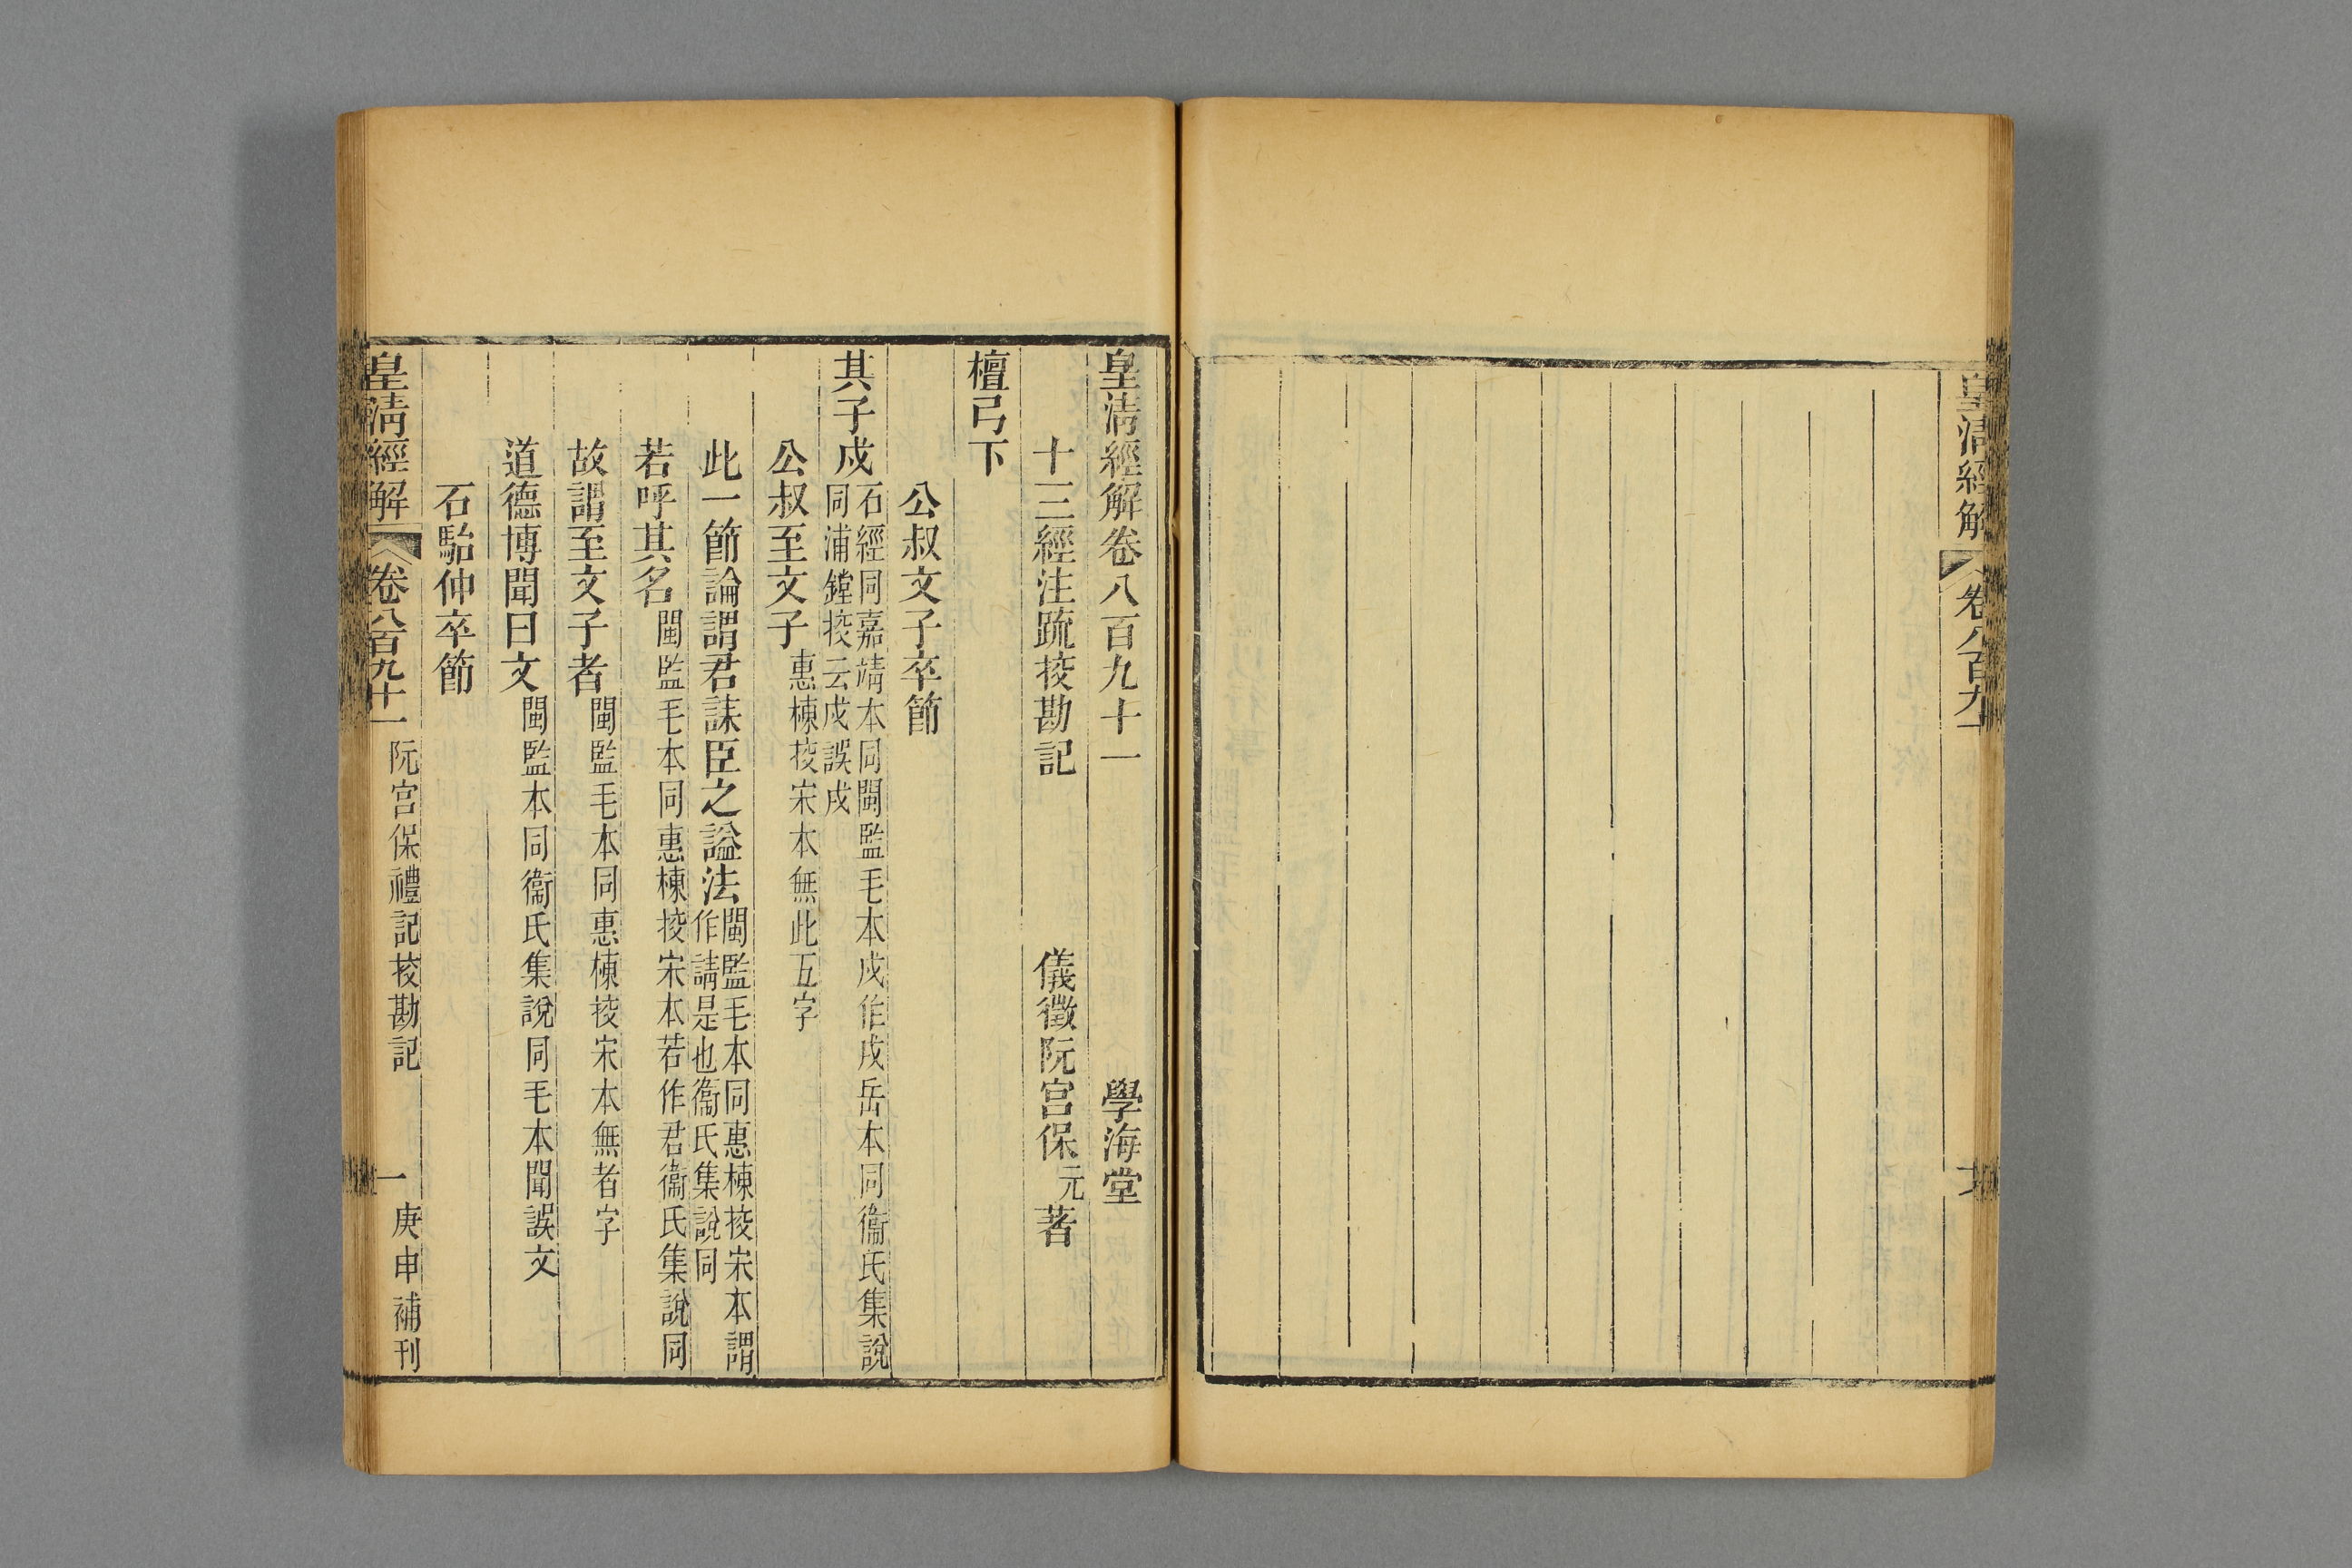 皇清經解
卷八百九十
皇清經解卷八百九十一 學海堂
十三經注疏挍勘記 儀徵阮宮保元著
檀弓下
公叔文子卒節
其子戍
石經同嘉靖本同閩監毛本戍作戌岳本同衞氏集說
同浦鏜挍云戍誤戌
公叔至文子惠棟挍宋本無此五字
此一節論謂君誄臣之謚法
閩監毛本同惠棟挍宋本謂
作請是也衞氏集說同
若呼其名閩監毛本同惠棟挍宋本若作君衞氏集說同
故謂至文子者閩監毛本同惠棟挍宋本無者字
道德博聞曰文閩監本同衞氏集說同毛本聞誤文
石駘仲卒節
皇清經解 卷八百九十一 阮宮保禮記挍勘記 一 庚申補刊